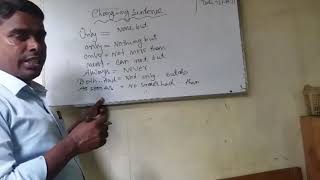 Changing Sentence
Only = None but
only = Nothing but
only = Not more than
must = Can not but
Always = Never
Both - And = Not only But also
As soon as = No sooner had - than